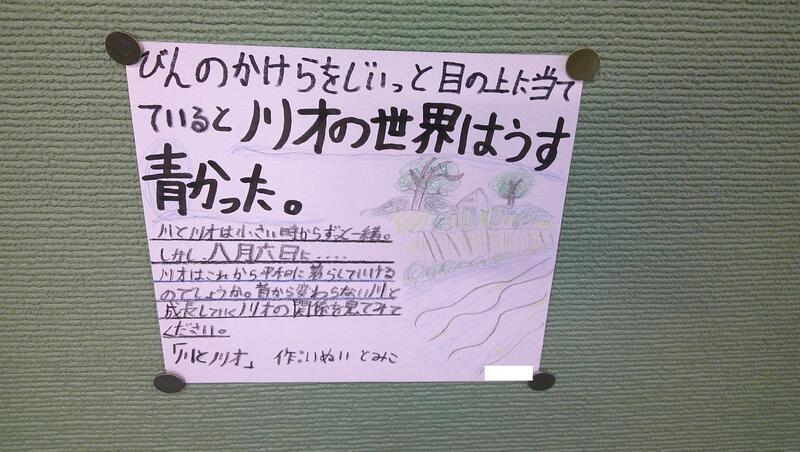 びんのかけらをじいっと目の上に当て
ていると ノリオの世界はうす
青かった。
川とノリオは小さい時からずっと一緒。
しかし、八月六日に....
ノリオはこれから平和に暮らしていける
のでしょうか。昔から変わらない川と
成長していくノリオの関係を見てみて
ください。
「川とノリオ」 作:いぬい とみこ